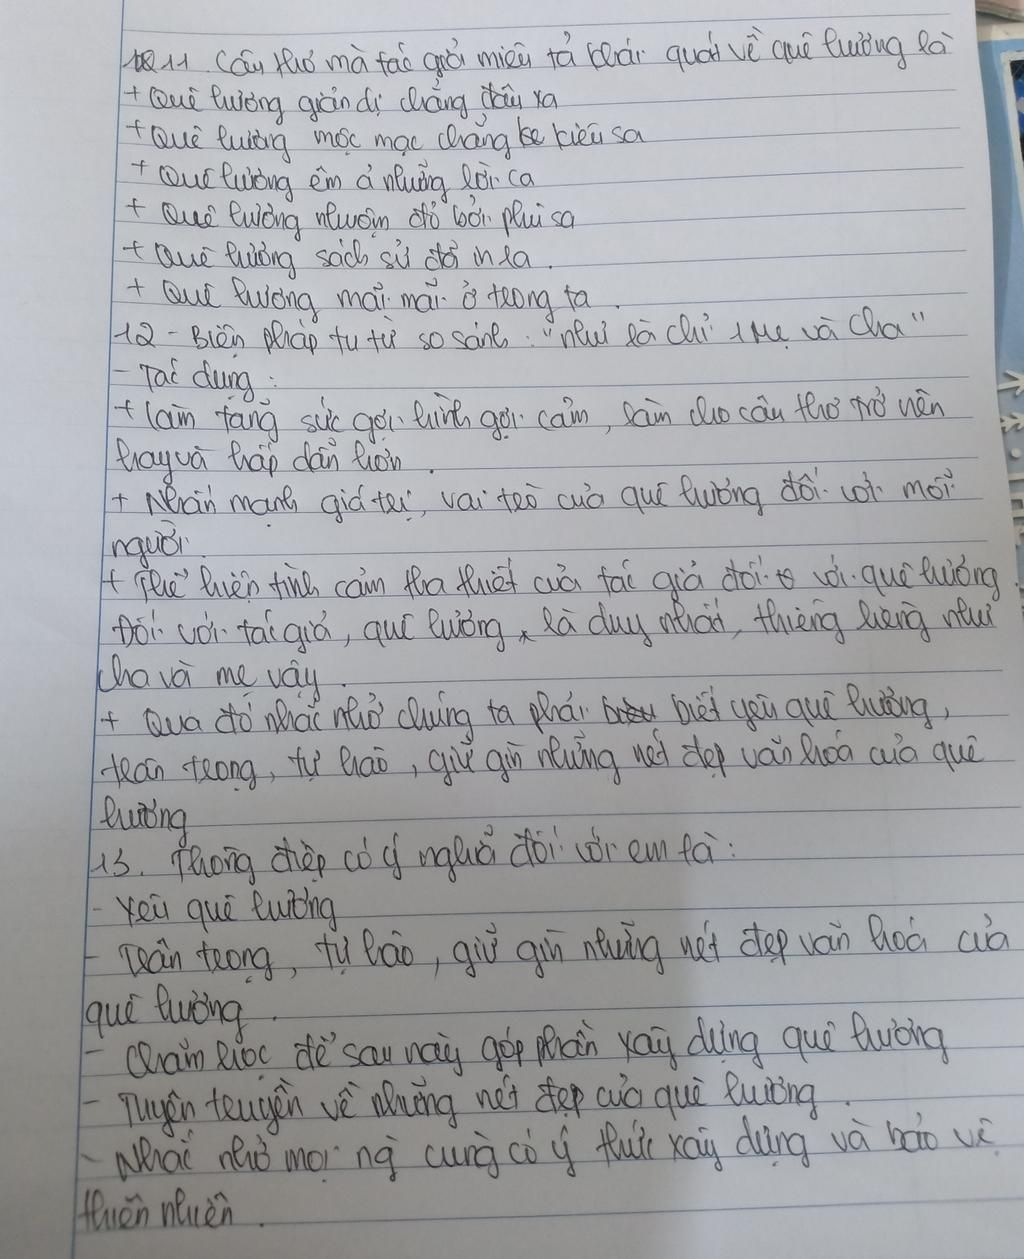 11. Câu thơ mà tác giả miêu tả khái quát về quê hương là
+ Quê hương giản dị chẳng đâu xa
+ Quê hương mộc mạc chẳng ke kiêu sa
+ Quê hương êm ả những lời ca
+ Quê hương nhuộm đỏ bởi phù sa
+ Quê hương sách sử đỏ in ra.
+ Quê hương mãi mãi ở trong ta.
12 - Biện pháp tu từ so sánh: "như là chỉ 1 Mẹ và Cha"
- Tác dụng:
+ làm tăng sức gợi hình gợi cảm, làm cho câu thơ trở nên
hay và hấp dẫn hơn.
+ Nhấn mạnh giá trị, vai trò của quê hương đối với mỗi
người.
+ Thể hiện tình cảm tha thiết của tác giả đối với quê hương.
Đối với tác giả, quê hương là duy nhất, thiêng liêng như
cha và mẹ vậy.
+ Qua đó nhắc nhở chúng ta phải biết yêu quê hương,
trân trọng, tự hào, giữ gìn những nét đẹp văn hoá của quê
hương
13. Thông điệp có ý nghĩa đối với em là:
- Yêu quê hương
- Trân trọng, tự hào, giữ gìn những nét đẹp văn hoá của
quê hương.
- Chăm học để sau này góp phần xây dựng quê hương
- Tuyên truyền về những nét đẹp của quê hương.
- Nhắc nhở mọi ng cùng có ý thức xây dựng và bảo vệ
thiên nhiên.